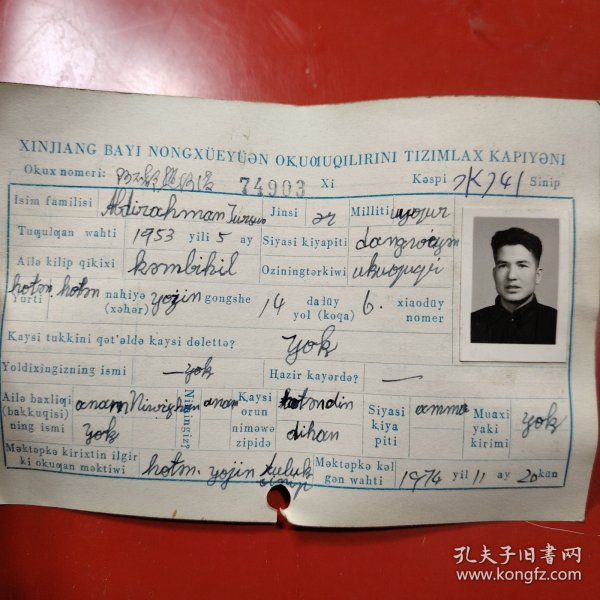 XINJIANG BAYI NONGXÜEYÜƏN OⱪUƢUQILIRINI TIZIMLAX KAPIYƏNI
Okux nomeri: 74903 Xi Kəspi 水741 Sinip
Isim familisi Abdirahman Tursun Jinsi ər Milliti uyƣur
Tuƣulƣan wahti 1953 yili 5 ay Siyasi kiyapiti
Ailə kilip qikixi kəmbiƣil Oziningtərkiwi okuƣuqi
Yurti hotən. hotən nahiyə (xəhər) gongshe 14 daliüy yol (koqa) 6. xiaodüy nomer
Kaysi tukkini qət'əldə kaysi dələttə? yok
Yoldixingizning ismi —yok Hazir kayərdə? —
Ailə baxliqi (bakkuqisi) ning ismi anam yok Nimingiz? anam Kaysi orun niməwə zipidə hotəndin dihan Siyasi kiya piti amma Muaxi yaki kirimi yok
Məktəpkə kirixtin ilgir ki okuƣan məktiwi hotən. Məktəpkə kəl gən wahti 1974 yil 11 ay 20 kün
孔夫子旧书网
www.kongfz.com